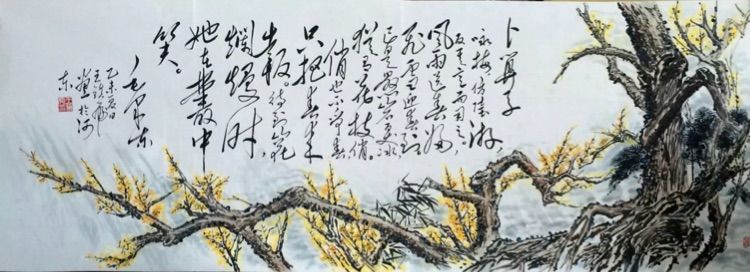 卜算子
咏梅 仿陆游
反其意而用之，
风雨送春归
飞雪迎春到
已是悬崖百丈冰
犹有花枝俏。
俏也不争春
只把春来
报。待到山花
烂熳时
她在叢中
笑。
乙未
王
画於河
东